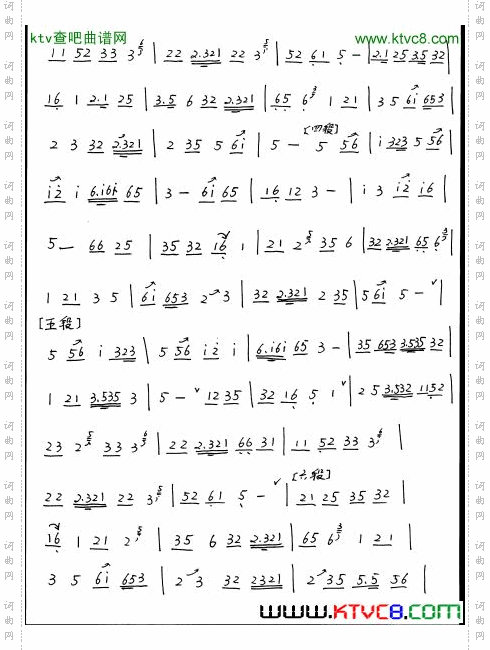 ktv查吧曲谱网 www.ktvc8.com
11 52 33 3 | 22 2.321 22 3 | 52 61 5 - | 2.1 25 3.5 32 |
16 1 2.1 25 | 3.5 6 32 2.321 | 65 6 1 21 | 3 5 6i 653 |
2 3 32 2.321 | 2 35 5 6i | 5 - [四段] 5 56 | i 323 5 56 |
i2 i 6.i6i 65 | 3 - 6i 65 | 16 12 3 - | i 3 i2 i6 |
5 - 66 25 | 35 32 16 1 | 21 2 35 6 | 32 2.321 65 6 |
1 21 3 5 | 6i 653 2 3 | 32 2.321 2 35 | 5 6i 5 - |
[五段]
5 56 i 323 | 5 56 i2 i | 6.i6i 65 3 - | 35 653 3.535 32 |
1 21 3.535 3 | 5 - 12 35 | 32 16 5 1 | 2 5 3.532 1152 |
23 2 33 3 | 22 2.321 66 31 | 11 52 33 3 |
22 2.321 22 3 | 52 61 5 - | [六段] 21 25 35 32 |
16 1 21 2 | 35 6 32 2.321 | 65 6 1 21 |
3 5 6i 653 | 2 3 32 2321 | 2 35 5.5 56 |
www.KTVC8.com
词曲网